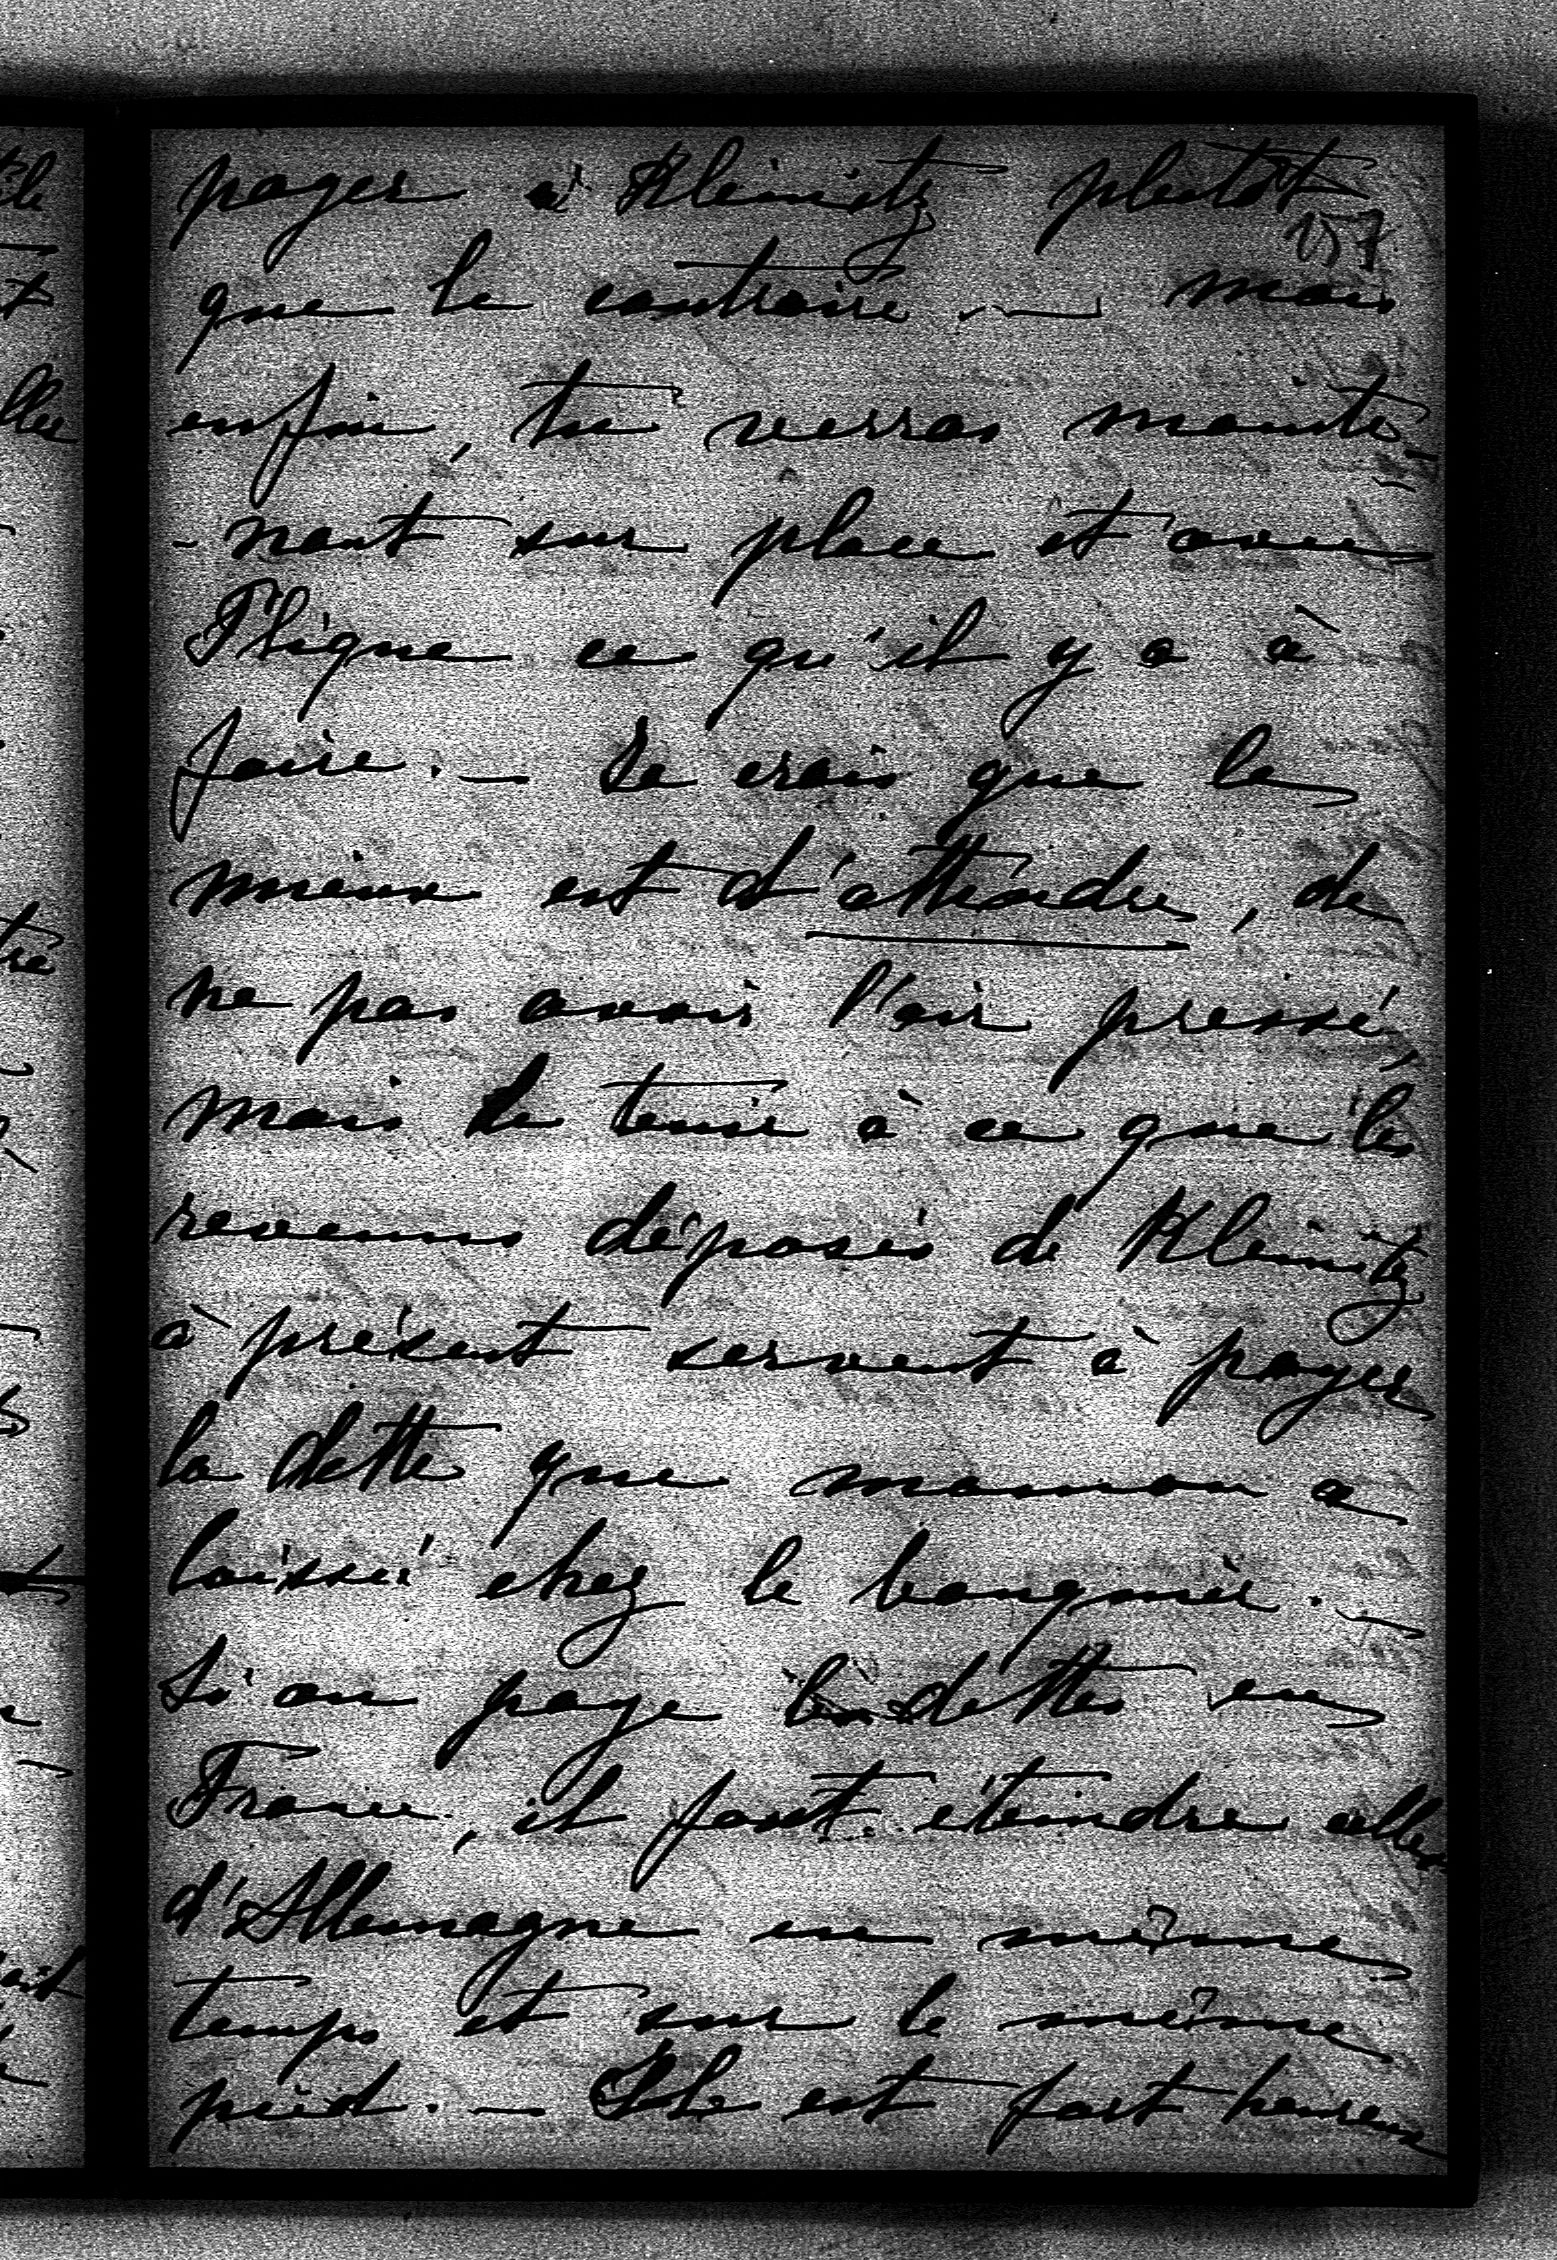 payer à Kleinitz plutot
157
que le contraire. — mais
enfin, tu verras mainte-
-nant sur place et avec
Fligue ce qu'il y a à
faire. — Je crois que le
mieux est d'attendre, de
ne pas avoir l'air pressé,
mais de tenir à ce que les
revenus déposés de Kleinitz
à présent servent à payer
la dette que maman a
laissée chez le banquier. —
Si on paye les dettes en
France, il faut éteindre celles
d'Allemagne en même
temps et sur le même
pied. — Il est fort heureux